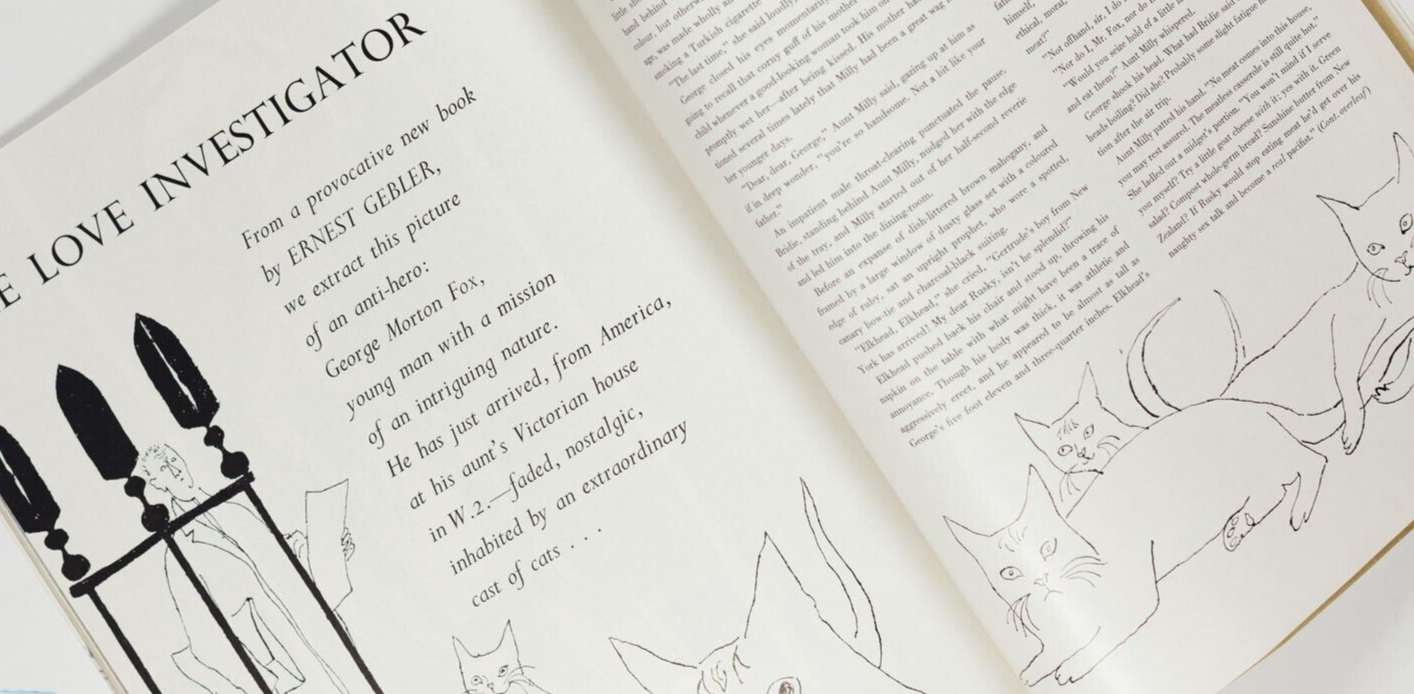 E LOVE INVESTIGATOR
From a provocative new book
by ERNEST GEBLER,
we extract this picture
of an anti-hero:
George Morton Fox,
young man with a mission
of an intriguing nature.
He has just arrived, from America,
at his aunt's Victorian house
in W.2.—faded, nostalgic,
inhabited by an extraordinary
cast of cats . . .
hand behind
colour, but otherwise
age, was made wholly
smoking a Turkish cigarette
"The last time," she said loudly,
George closed his eyes momentarily
going to recall that corny gaff of his mother
child whenever a good-looking woman took him on
promptly wet her—after being kissed. His mother had
tioned several times lately that Milly had been a great wag in
her younger days.
"Dear, dear, George," Aunt Milly said, gazing up at him as
if in deep wonder, "you're so handsome. Not a bit like your
father."
An impatient male throat-clearing punctuated the pause.
Bridie, standing behind Aunt Milly, nudged her with the edge
of the tray, and Milly started out of her half-second reverie
and led him into the dining-room.
Before an expanse of dish-littered brown mahogany, and
framed by a large window of dusty glass set with a coloured
edge of ruby, sat an upright prophet, who wore a spotted,
canary bow-tie and charcoal-black suiting.
"Elkhead, Elkhead," she cried, "Gertrude's boy from New
York has arrived! My dear Rusky, isn't he splendid?"
Elkhead pushed back his chair and stood up, throwing his
napkin on the table with what might have been a trace of
annoyance. Though his body was thick, it was athletic and
aggressively erect, and he appeared to be almost as tall as
George's five foot eleven and three-quarter inches. Elkhead's
himself,
ethical, moral,
meat?"
"Not offhand, sir, I do
"Nor do I, Mr. Fox, nor do
"Would you seize hold of a little
and eat them?" Aunt Milly whispered.
George shook his head. What had Bridie said
heads boiling? Did she? Probably some slight fatigue
tion after the air trip.
Aunt Milly patted his hand. "No meat comes into this house,
you may rest assured. The meatless casserole is still quite hot."
She ladled out a midget's portion. "You won't mind if I serve
you myself? Try a little goat cheese with it; yes with it. Green
salad? Compost whole-germ bread? Sunshine butter from New
Zealand? If Rusky would stop eating meat he'd get over his
naughty sex talk and become a real pacifist." (Cont. overleaf)